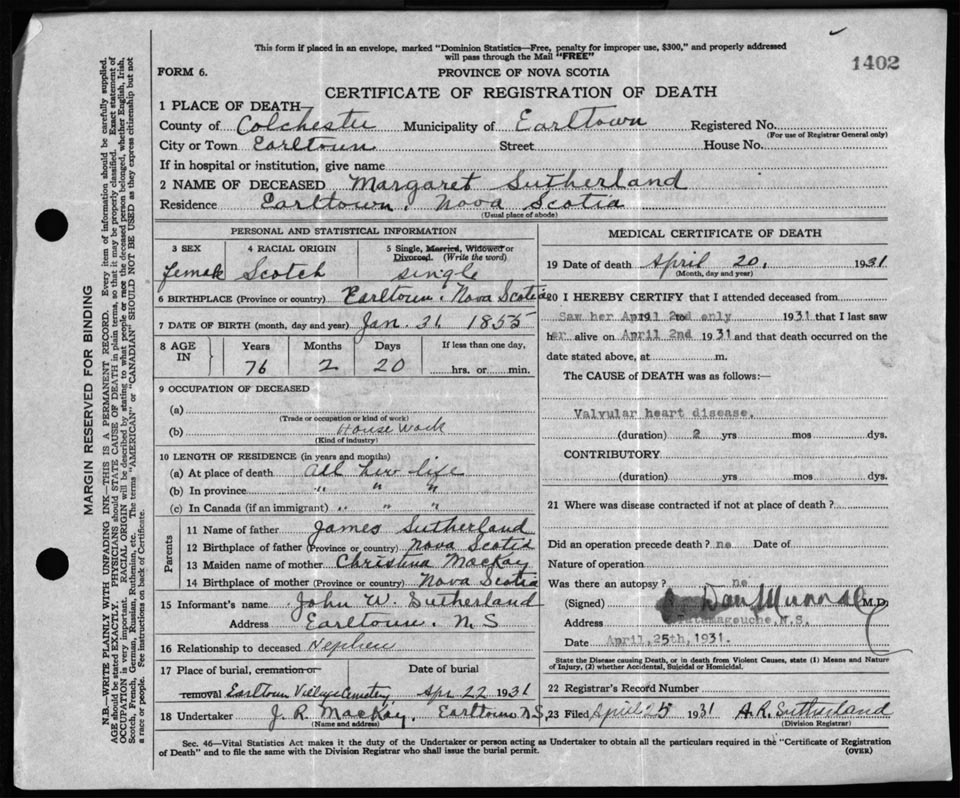 This form if placed in an envelope, marked "Dominion Statistics—Free, penalty for improper use, $300," and properly addressed
will pass through the Mail "FREE"
1402
FORM 6.
PROVINCE OF NOVA SCOTIA
CERTIFICATE OF REGISTRATION OF DEATH
1 PLACE OF DEATH—
County of Colchester Municipality of Earltown Registered No.
(For use of Registrar General only)
City or Town Earltown Street House No.
If in hospital or institution, give name
2 NAME OF DECEASED Margaret Sutherland
Residence Earltown, Nova Scotia
(Usual place of abode)
PERSONAL AND STATISTICAL INFORMATION
3 SEX 4 RACIAL ORIGIN 5 Single, Married, Widowed or
Divorced. (Write the word)
female Scotch single
6 BIRTHPLACE (Province or country) Earltown, Nova Scotia
7 DATE OF BIRTH (month, day and year) Jan. 31 1855
8 AGE IN Years Months Days If less than one day,
76 2 20 hrs. or min.
9 OCCUPATION OF DECEASED
(a)
(Trade or occupation or kind of work)
(b) House Work
(Kind of industry)
10 LENGTH OF RESIDENCE (in years and months)
(a) At place of death All her life
(b) In province " " "
(c) In Canada (if an immigrant) " " "
Parents
11 Name of father James Sutherland
12 Birthplace of father (Province or country) Nova Scotia
13 Maiden name of mother Christina MacKay
14 Birthplace of mother (Province or country) Nova Scotia
15 Informant's name John W. Sutherland
Address Earltown. N.S
16 Relationship to deceased Nephew
17 Place of burial, cremation or Date of burial
removal Earltown Village Cemetery Apr 22 1931
18 Undertaker J. R. MacKay, Earltown N.S,
(Name and address)
MEDICAL CERTIFICATE OF DEATH
19 Date of death April 20, 1931
(Month, day and year)
20 I HEREBY CERTIFY that I attended deceased from
Saw her April 2nd only 19 to 1931 that I last saw
her alive on April 2nd 1931 and that death occurred on the
date stated above, at m.
The CAUSE of DEATH was as follows:—
Valvular heart disease.
(duration) 2 yrs mos dys.
CONTRIBUTORY
(duration) yrs mos dys.
21 Where was disease contracted if not at place of death?
Did an operation precede death? no Date of
Nature of operation
Was there an autopsy? no
(Signed) Dan Murray M.D.
Address Tatamagouche, N.S.
Date April, 25th, 1931.
State the Disease causing Death, or in death from Violent Causes, state (1) Means and Nature
of Injury, (2) whether Accidental, Suicidal or Homicidal.
22 Registrar's Record Number
23 Filed April 25 1931 A.R. Sutherland
(Division Registrar)
Sec. 46—Vital Statistics Act makes it the duty of the Undertaker or person acting as Undertaker to obtain all the particulars required in the "Certificate of Registration
of Death" and to file the same with the Division Registrar who shall issue the burial permit.
(OVER)
MARGIN RESERVED FOR BINDING
N.B.—WRITE PLAINLY WITH UNFADING INK—THIS IS A PERMANENT RECORD. Every item of information should be carefully supplied.
AGE should be stated EXACTLY. PHYSICIANS should STATE CAUSE OF DEATH in plain terms, so that it may be properly classified. Exact statement of
OCCUPATION is very important. RACIAL ORIGIN will be described by stating to what people or race the deceased person belonged, whether English, Irish,
Scotch, French, German, Russian, Ruthenian, etc. The terms "AMERICAN" or "CANADIAN" SHOULD NOT BE USED as they express citizenship but not
a race or people. See instructions on back of Certificate.